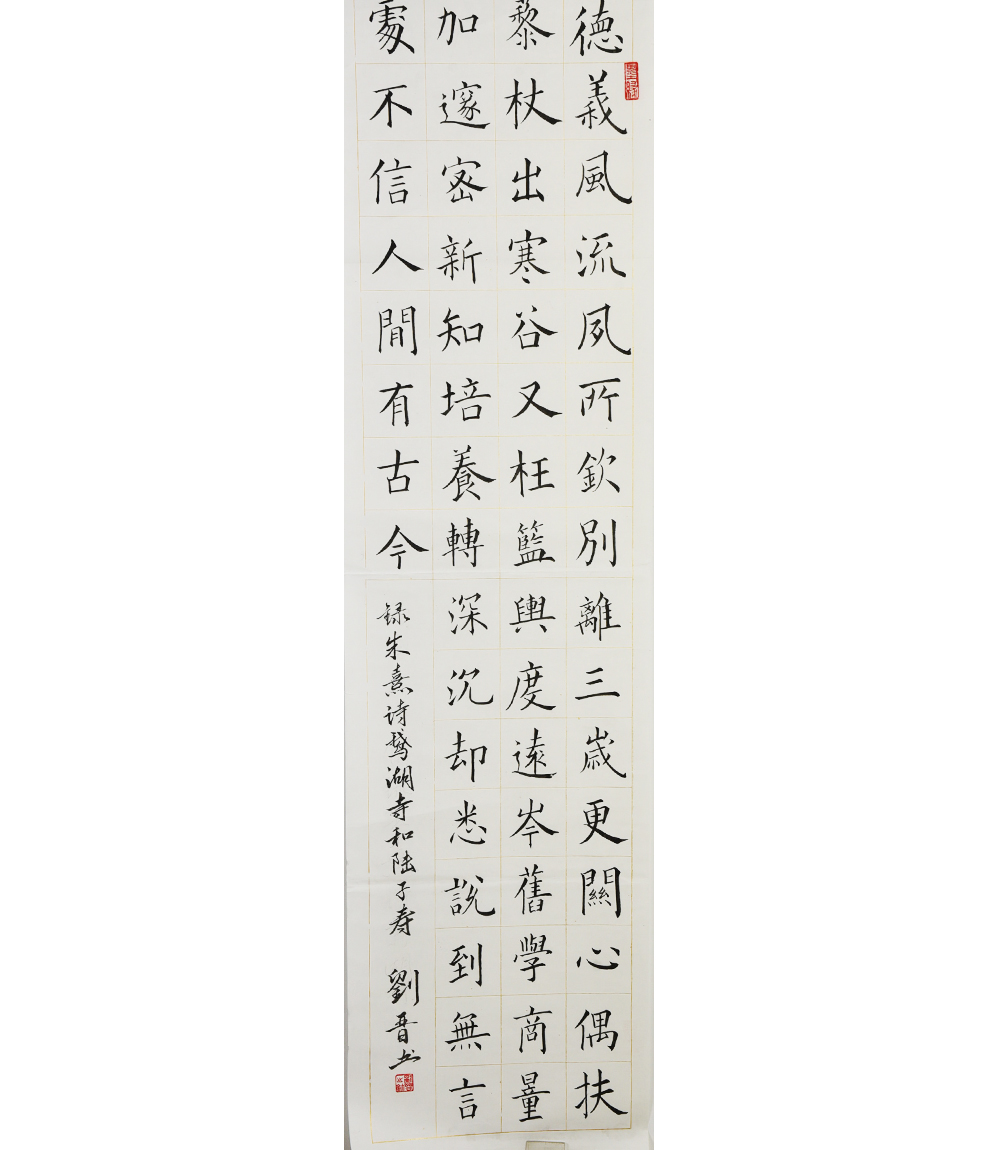 德義風流夙所欽別離三歲更關心偶扶
藜杖出寒谷又枉籃輿度遠岑舊學商量
加邃密新知培養轉深沉却悉說到無言
處不信人間有古今
録朱熹诗鵞湖寺和陆子寿 劉晋书